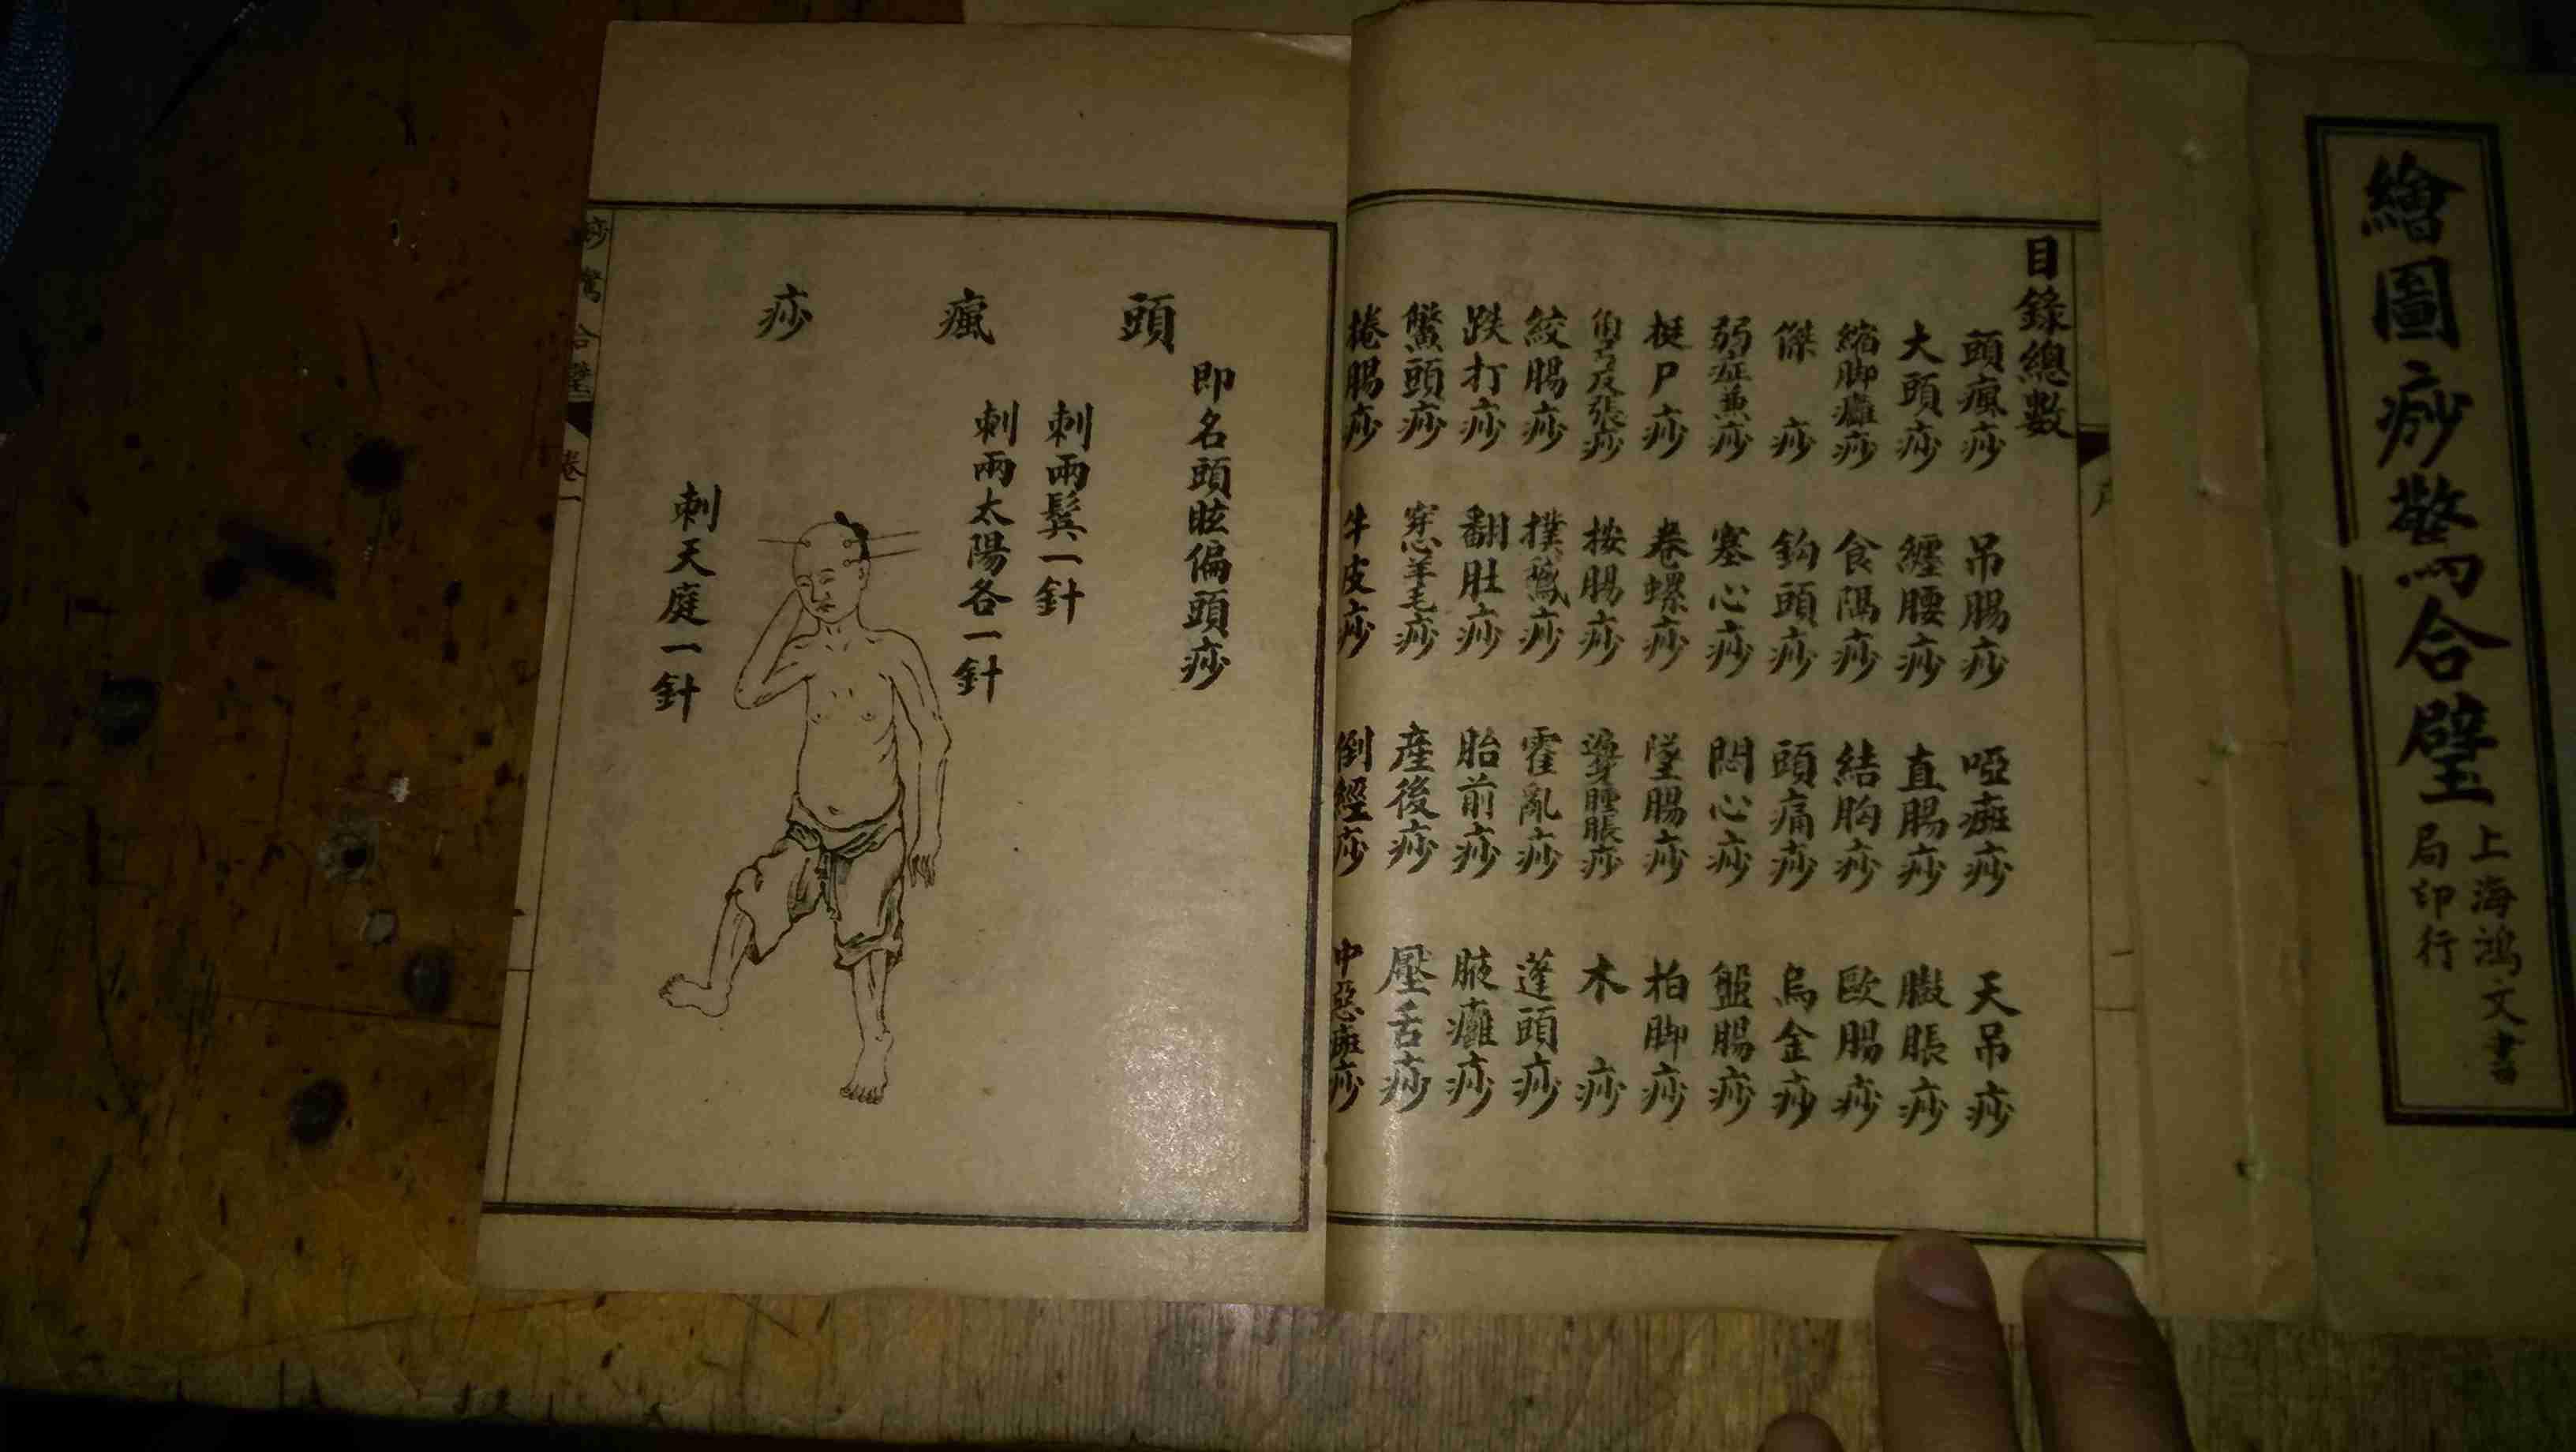 繪圖痧驚合璧
上海鴻文書
局印行
目錄總數
頭瘋痧 吊腸痧 啞瘢痧 天吊痧
大頭痧 纏腰痧 直腸痧 臌脹痧
縮脚癰痧 食隔痧 結胸痧 歐腸痧
傑痧 鈎頭痧 頭痛痧 烏金痧
弱症兼痧 塞心痧 悶心痧 盤腸痧
挺尸痧 卷螺痧 墜腸痧 拍脚痧
角弓反張痧 按腸痧 腫脹痧 木痧
絞腸痧 撲鵝痧 霍亂痧 蓬頭痧
跌打痧 翻肚痧 胎前痧 腋癰痧
蟹頭痧 羊毛痧 産後痧 壓舌痧
捲腸痧 牛皮痧 倒經痧 中惡痧
頭瘋痧
即名頭眩偏頭痧
刺兩鬂一針
刺兩太陽各一針
刺天庭一針
痧驚合璧 卷一